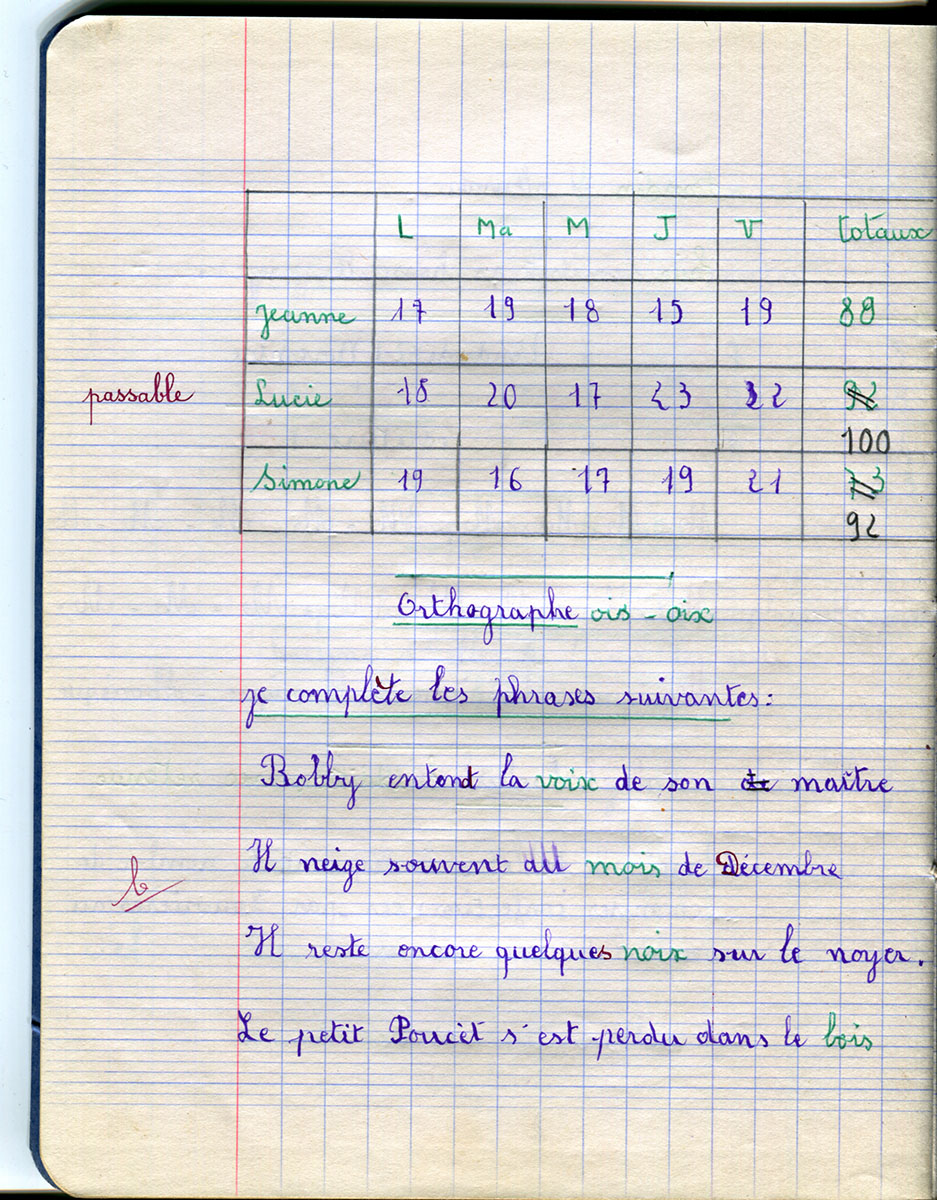 L Ma M J V totaux
Jeanne 17 19 18 15 19 88
passable Lucie 18 20 17 23 22 92
100
Simone 19 16 17 19 21 73
92
Orthographe ois - oix
je complète les phrases suivantes :
Bobby entend la voix de son maître
Il neige souvent au mois de Décembre
b
Il reste encore quelques noix sur le noyer.
Le petit Poucet s'est perdu dans le bois